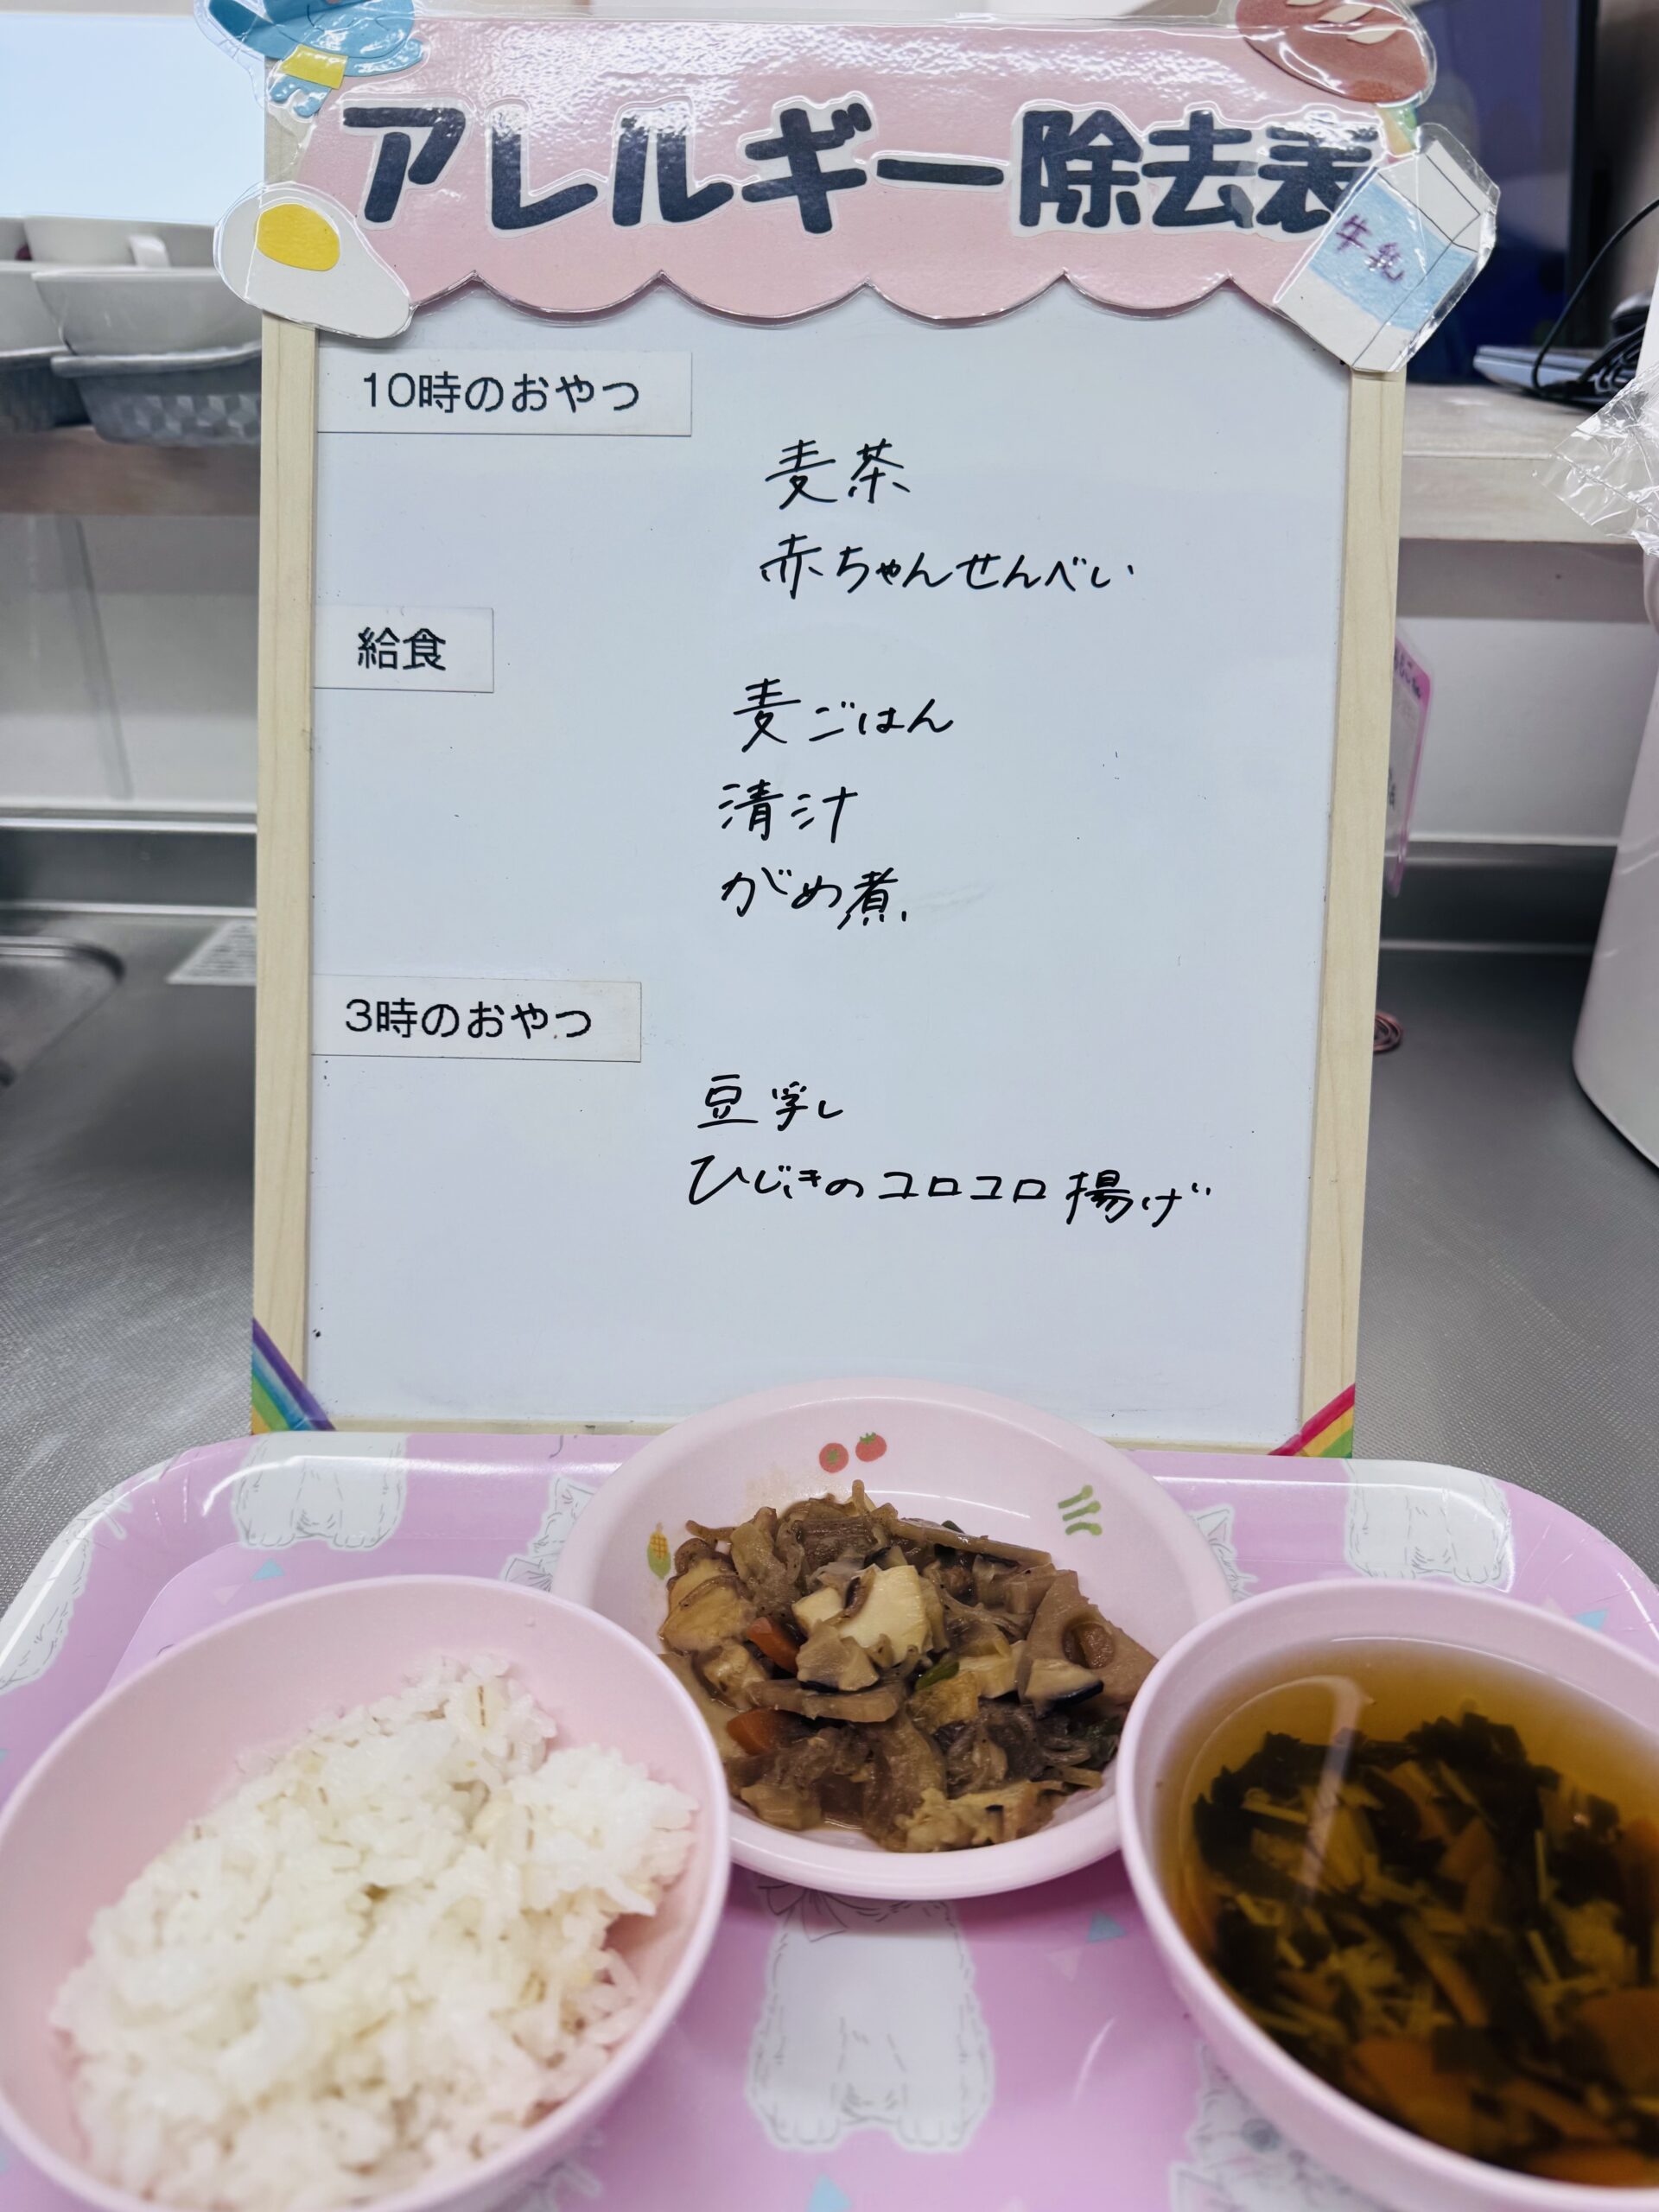 アレルギー除去表
牛乳
10時のおやつ
麦茶
赤ちゃんせんべい
給食
麦ごはん
清汁
がめ煮
3時のおやつ
豆乳
ひじきのコロコロ揚げ